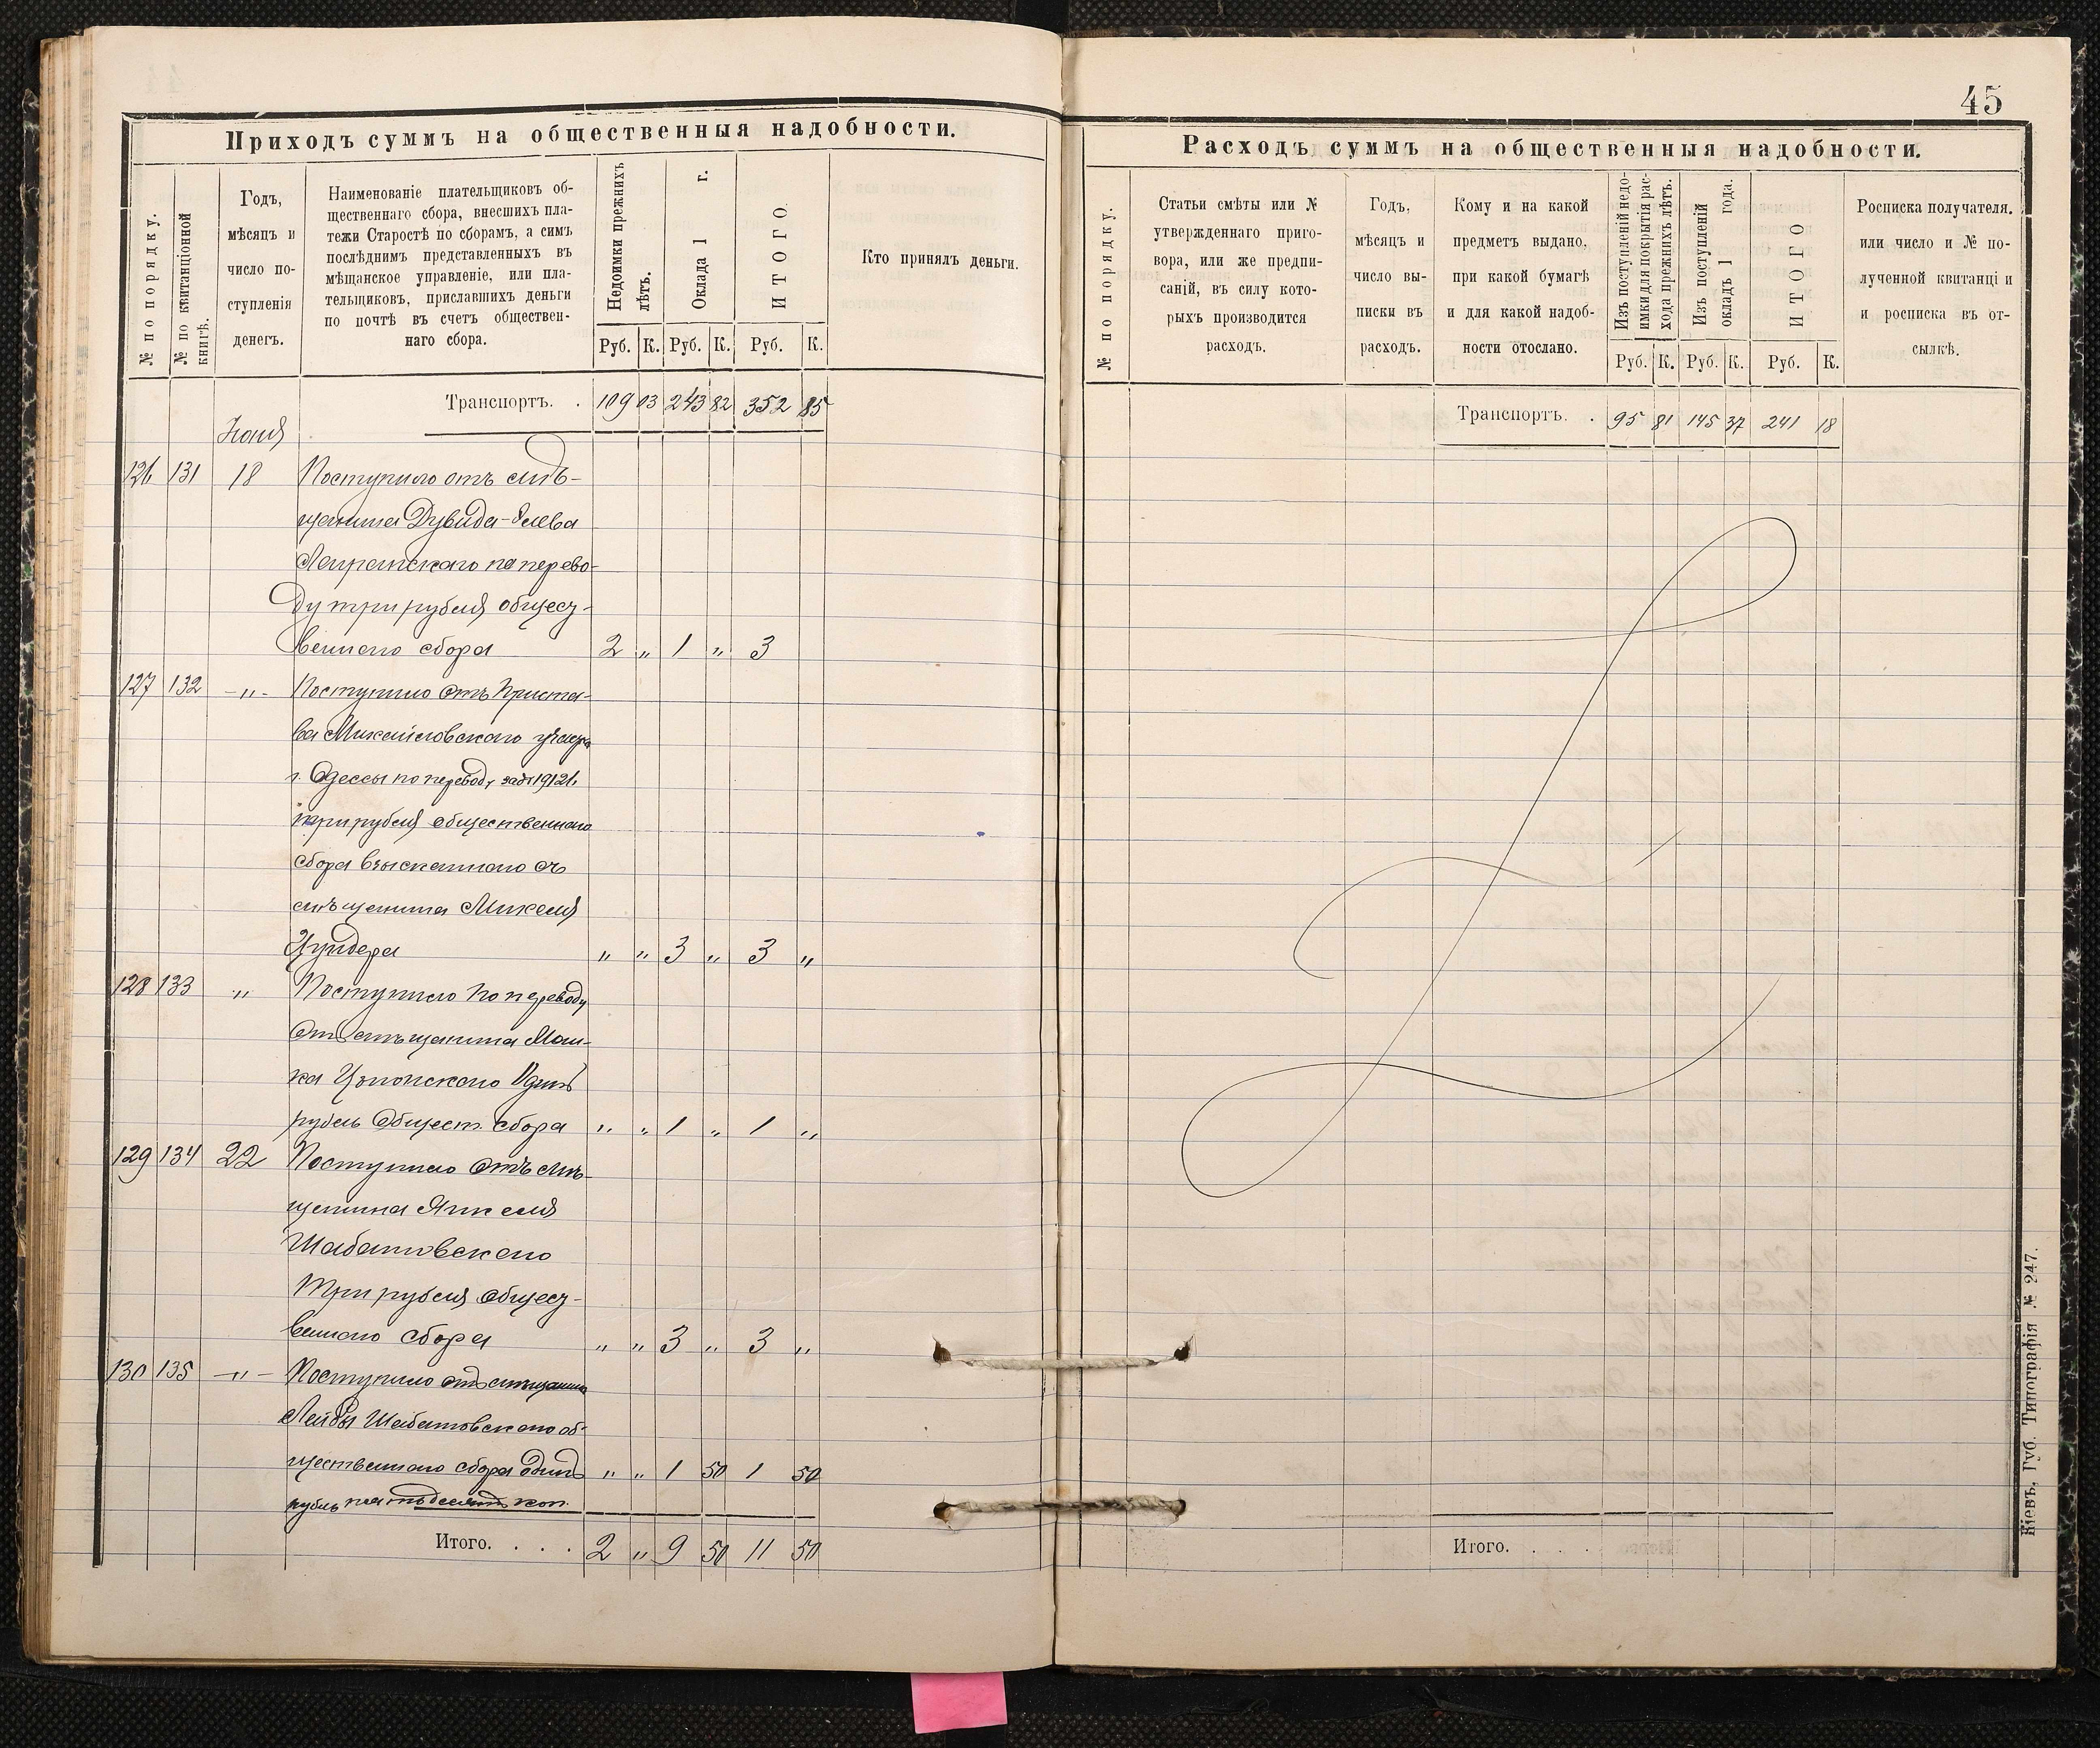 Приходъ суммъ на общественныя надобности.
№ по порядку.
№ по квитанціонной
книгѣ.
Годъ,
мѣсяцъ и
число по-
ступленія
денегъ.
Наименованіе плательщиковъ об-
щественнаго сбора, внесшихъ пла-
тежи Старостѣ по сборамъ, а симъ
послѣднимъ представленныхъ въ
мѣщанское управленіе, или пла-
тельщиковъ, приславшихъ деньги
по почтѣ въ счетъ обществен-
наго сбора.
Недоимки прежнихъ
лѣтъ.
Оклада 1 г.
ИТОГО.
Кто принялъ деньги.
Руб. К. Руб. К. Руб. К.
Транспортъ. . 109 03 243 82 352 85
Іюня
126 131 18 Поступило отъ мѣ-
щанина Дувида-
по перево-
ду три рубля общест-
веннаго сбора 2 „ 1 „ 3
127 132 -„- Поступило отъ Приста-
ва Михайловскаго участка
г. Одессы по переводу
три рубля общественнаго
сбора взысканнаго съ
мѣщанина Михеля
Цундера „ „ 3 „ 3 „
128 133 „ Поступило по переводу
отъ мѣщанина Мош-
ка Одинъ
рубль Общест. сбора „ „ 1 „ 1 „
129 134 22 Поступило отъ мѣ-
щанина Янкеля
Шабатовскаго
Три рубля общест-
веннаго сбора „ „ 3 „ 3 „
130 135 -„- Поступило отъ мѣщанина
Лейбы Шабатовскаго об-
щественнаго сбора одинъ „ „ 1 50 1 50
рубль пятьдесятъ коп.
Итого. . . . 2 „ 9 50 11 50
45
Расходъ суммъ на общественныя надобности.
№ по порядку.
Статьи смѣты или №
утвержденнаго приго-
вора, или же предпи-
саній, въ силу кото-
рыхъ производится
расходъ.
Годъ,
мѣсяцъ и
число вы-
писки въ
расходъ.
Кому и на какой
предметъ выдано,
при какой бумагѣ
и для какой надоб-
ности отослано.
Изъ поступленій недо-
имки для покрытія рас-
хода прежнихъ лѣтъ.
Изъ поступленій
окладъ 1 года.
ИТОГО
Росписка получателя.
или число и № по-
лученной квитанці и
и росписка въ от-
сылкѣ.
Руб. К. Руб. К. Руб. К.
Транспортъ. . 95 81 145 37 241 18
Итого. . . .
Кіевъ, Губ. Типографія № 247.